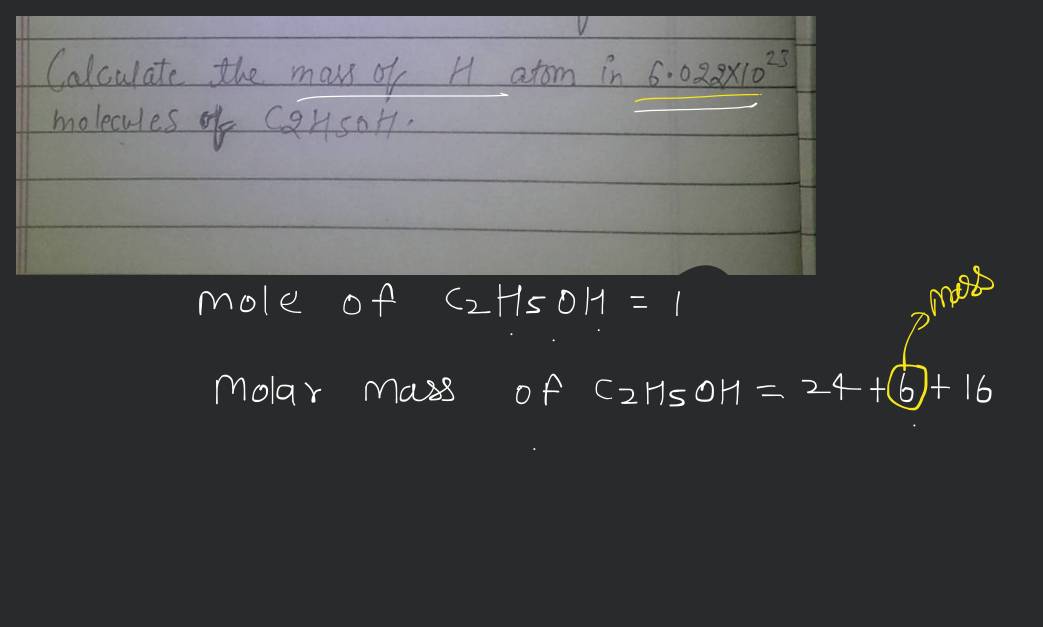 Calculate the mass of H atom in 6.022X10²³
molecules of C2H5OH.
mole of C₂H₅OH = 1
mass
Molar mass of C₂H₅OH = 24 + 6 + 16